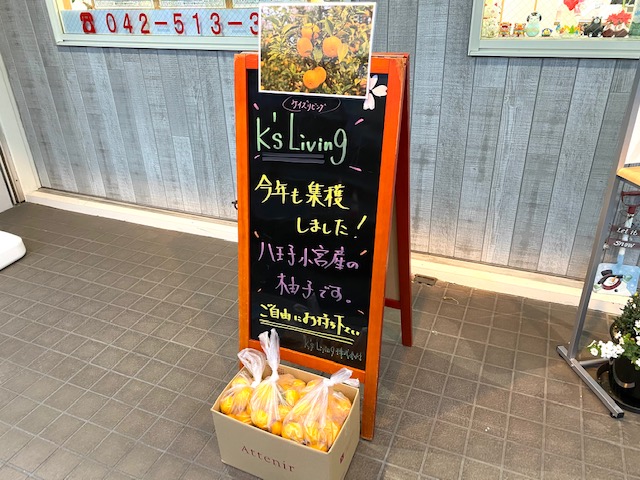 ☎ 042-513-3
ケイズリビング
K's Living
今年も集穫
しました！
八王子小宮産の
柚子です。
ご自由にお持ち下さい
K's Living 株式会社
Artenir
Let it
Snow